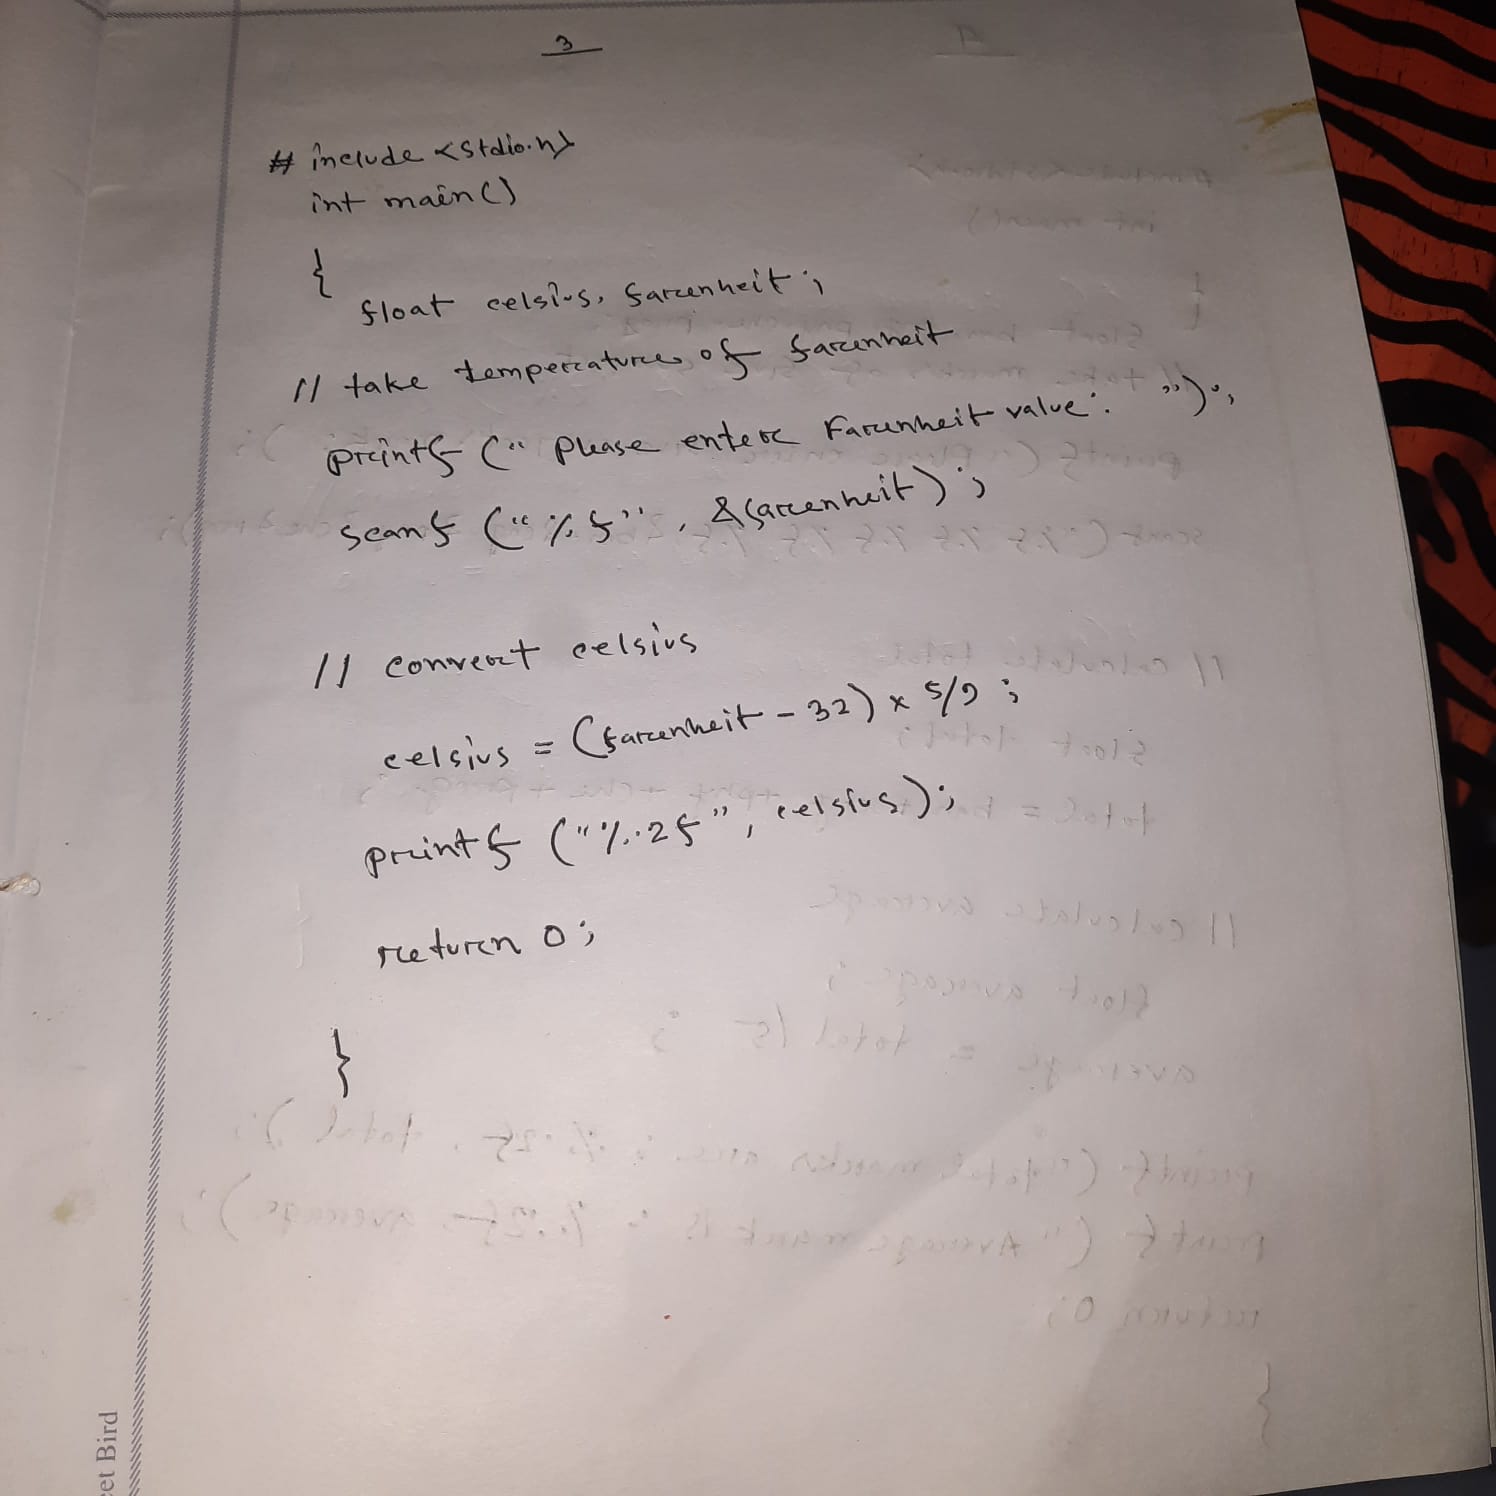 3
# include <stdio.h>
int main()
{
float celsius, farenheit;
// take temperatures of farenheit
printf (" please enter Farenheit value: ");
scanf ("%f", &farenheit);
// convert celsius
celsius = (farenheit - 32) x 5/9;
printf ("%.2f", celsius);
return 0;
}
eet Bird